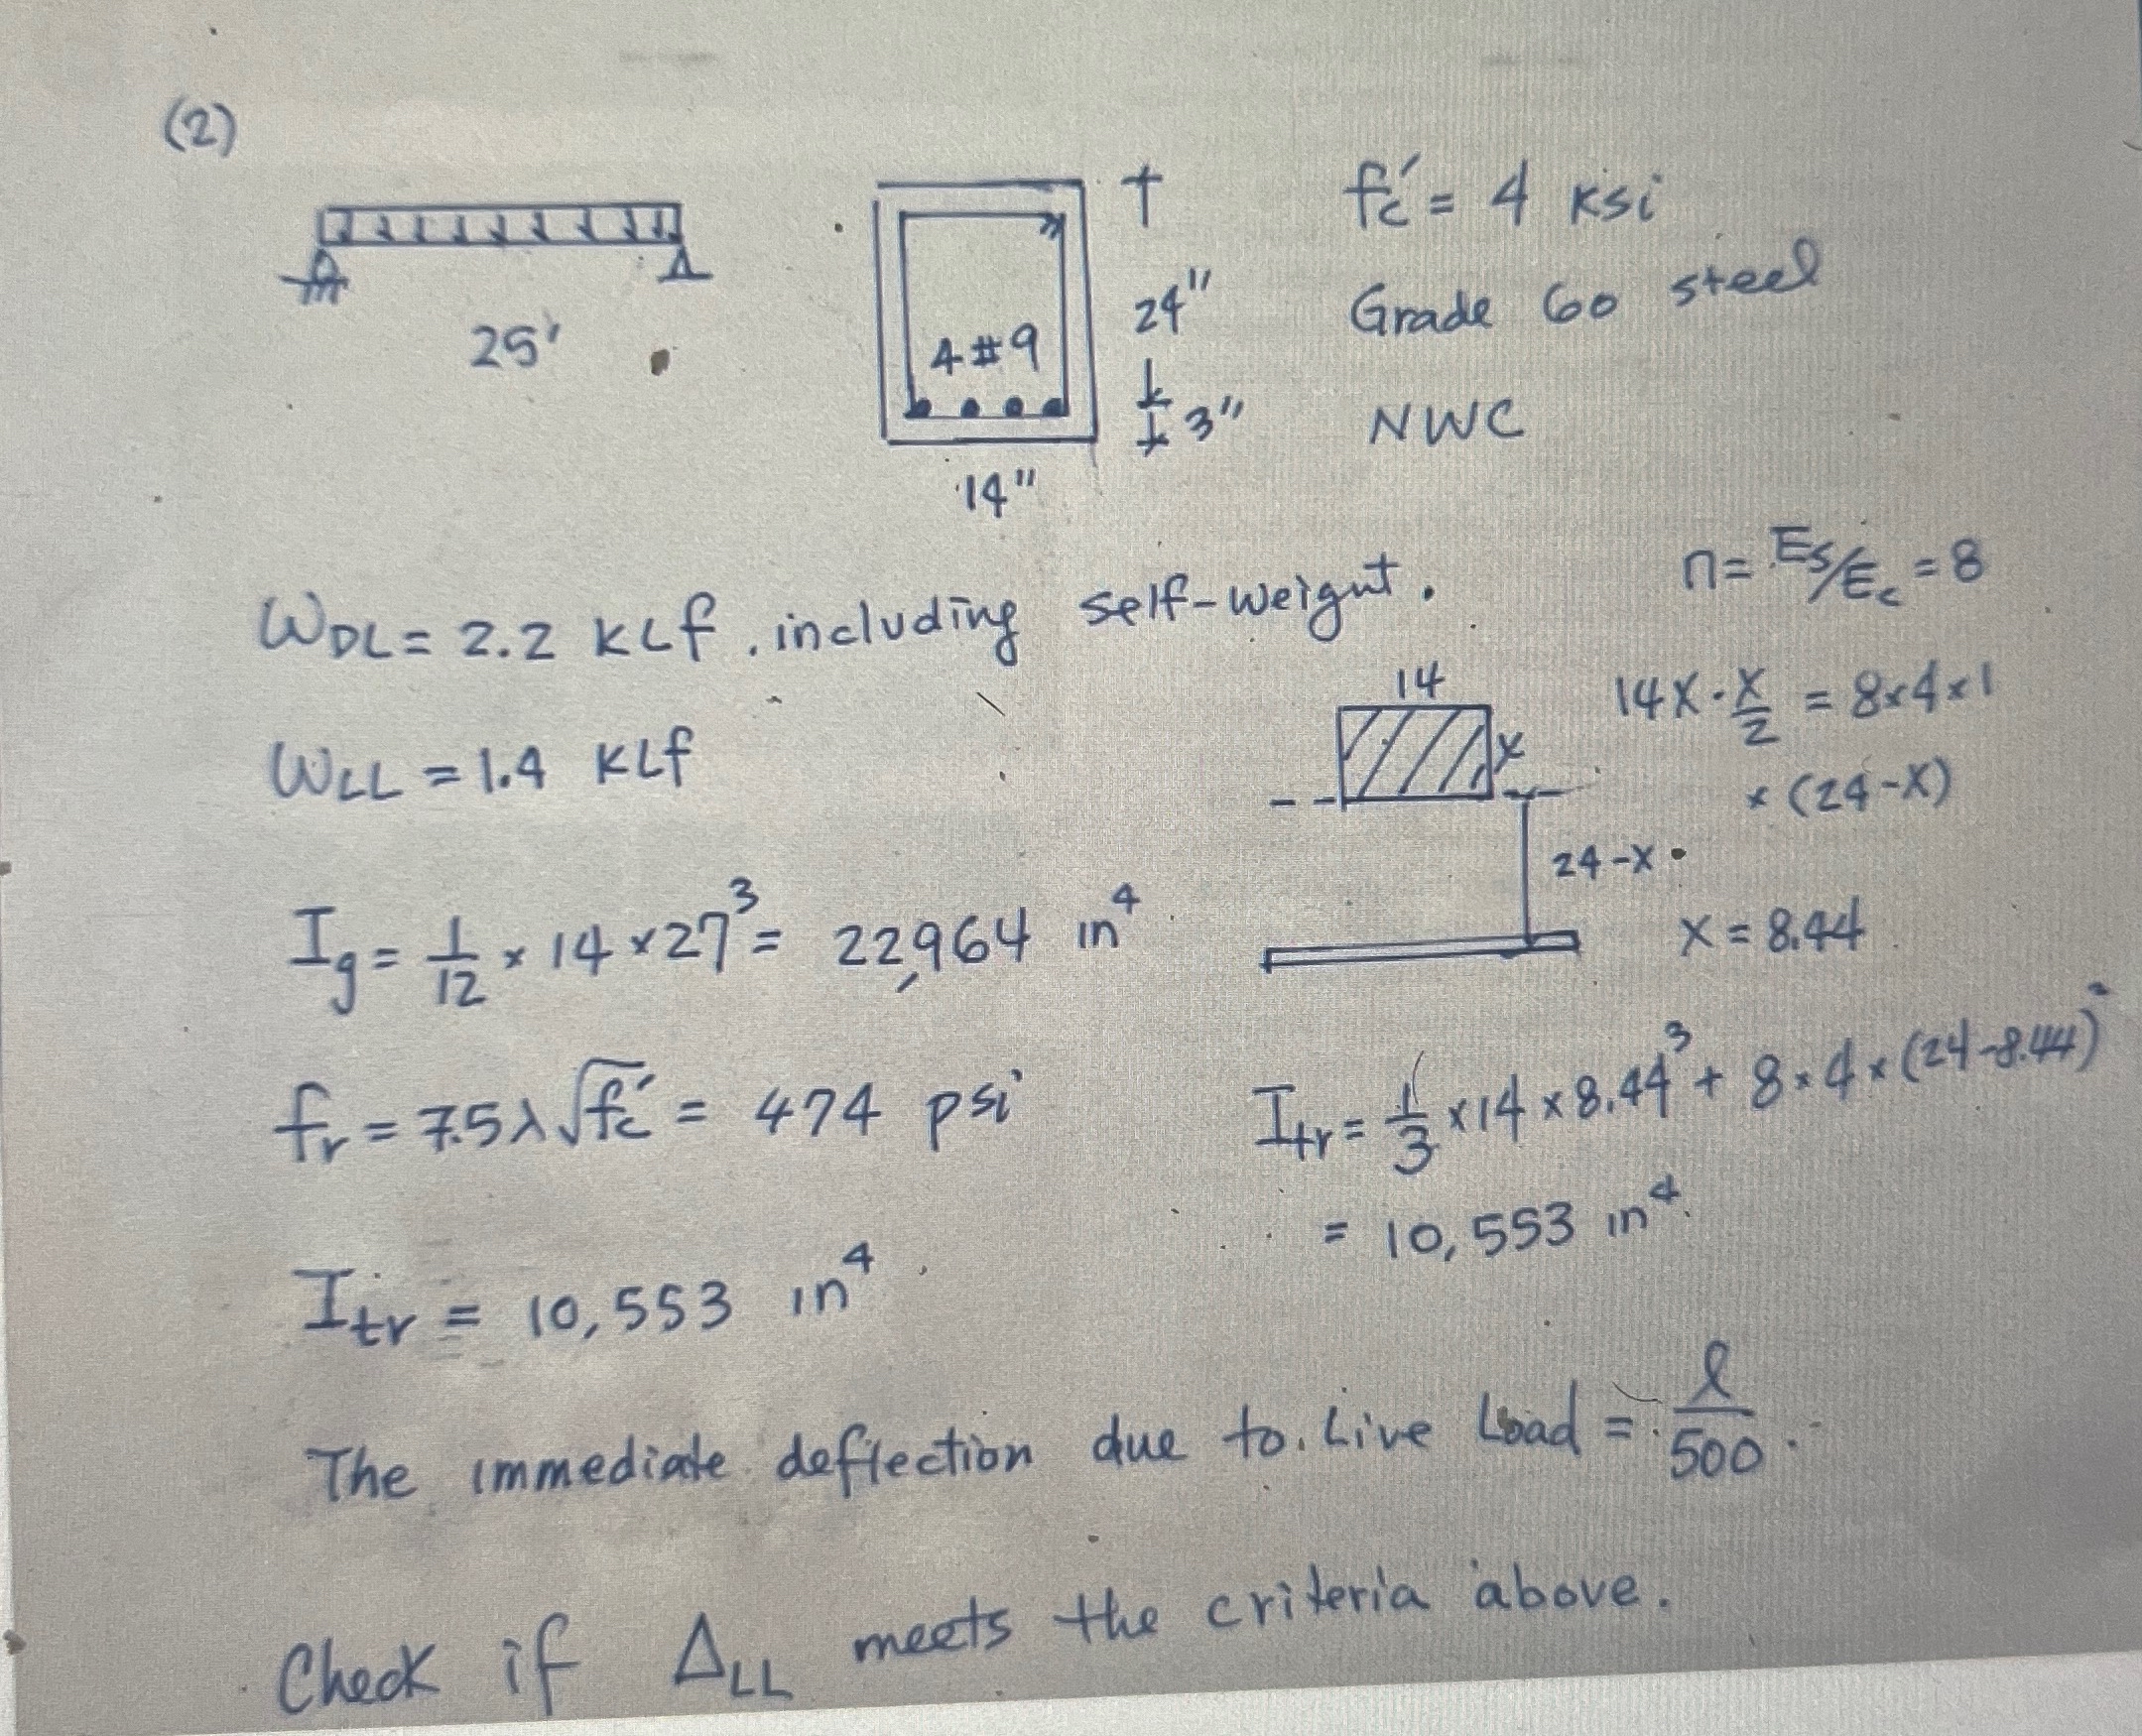 (2)
25'
4#9
24"
3"
14"
fc' = 4 ksi
Grade 60 steel
NWC
WDL = 2.2 KLf, including self-weight.
WLL = 1.4 KLf
n = Es/Ec = 8
14
x
24-x
14x · x/2 = 8×4×1
× (24-x)
x = 8.44
Ig = 1/12 × 14 × 27³ = 22,964 in⁴
fr = 7.5λ√fc' = 474 psi
Itr = 1/3 × 14 × 8.44³ + 8×4×(24-8.44)²
= 10,553 in⁴
Itr = 10,553 in⁴
The immediate deflection due to Live Load = ℓ/500.
Check if ΔLL meets the criteria above.